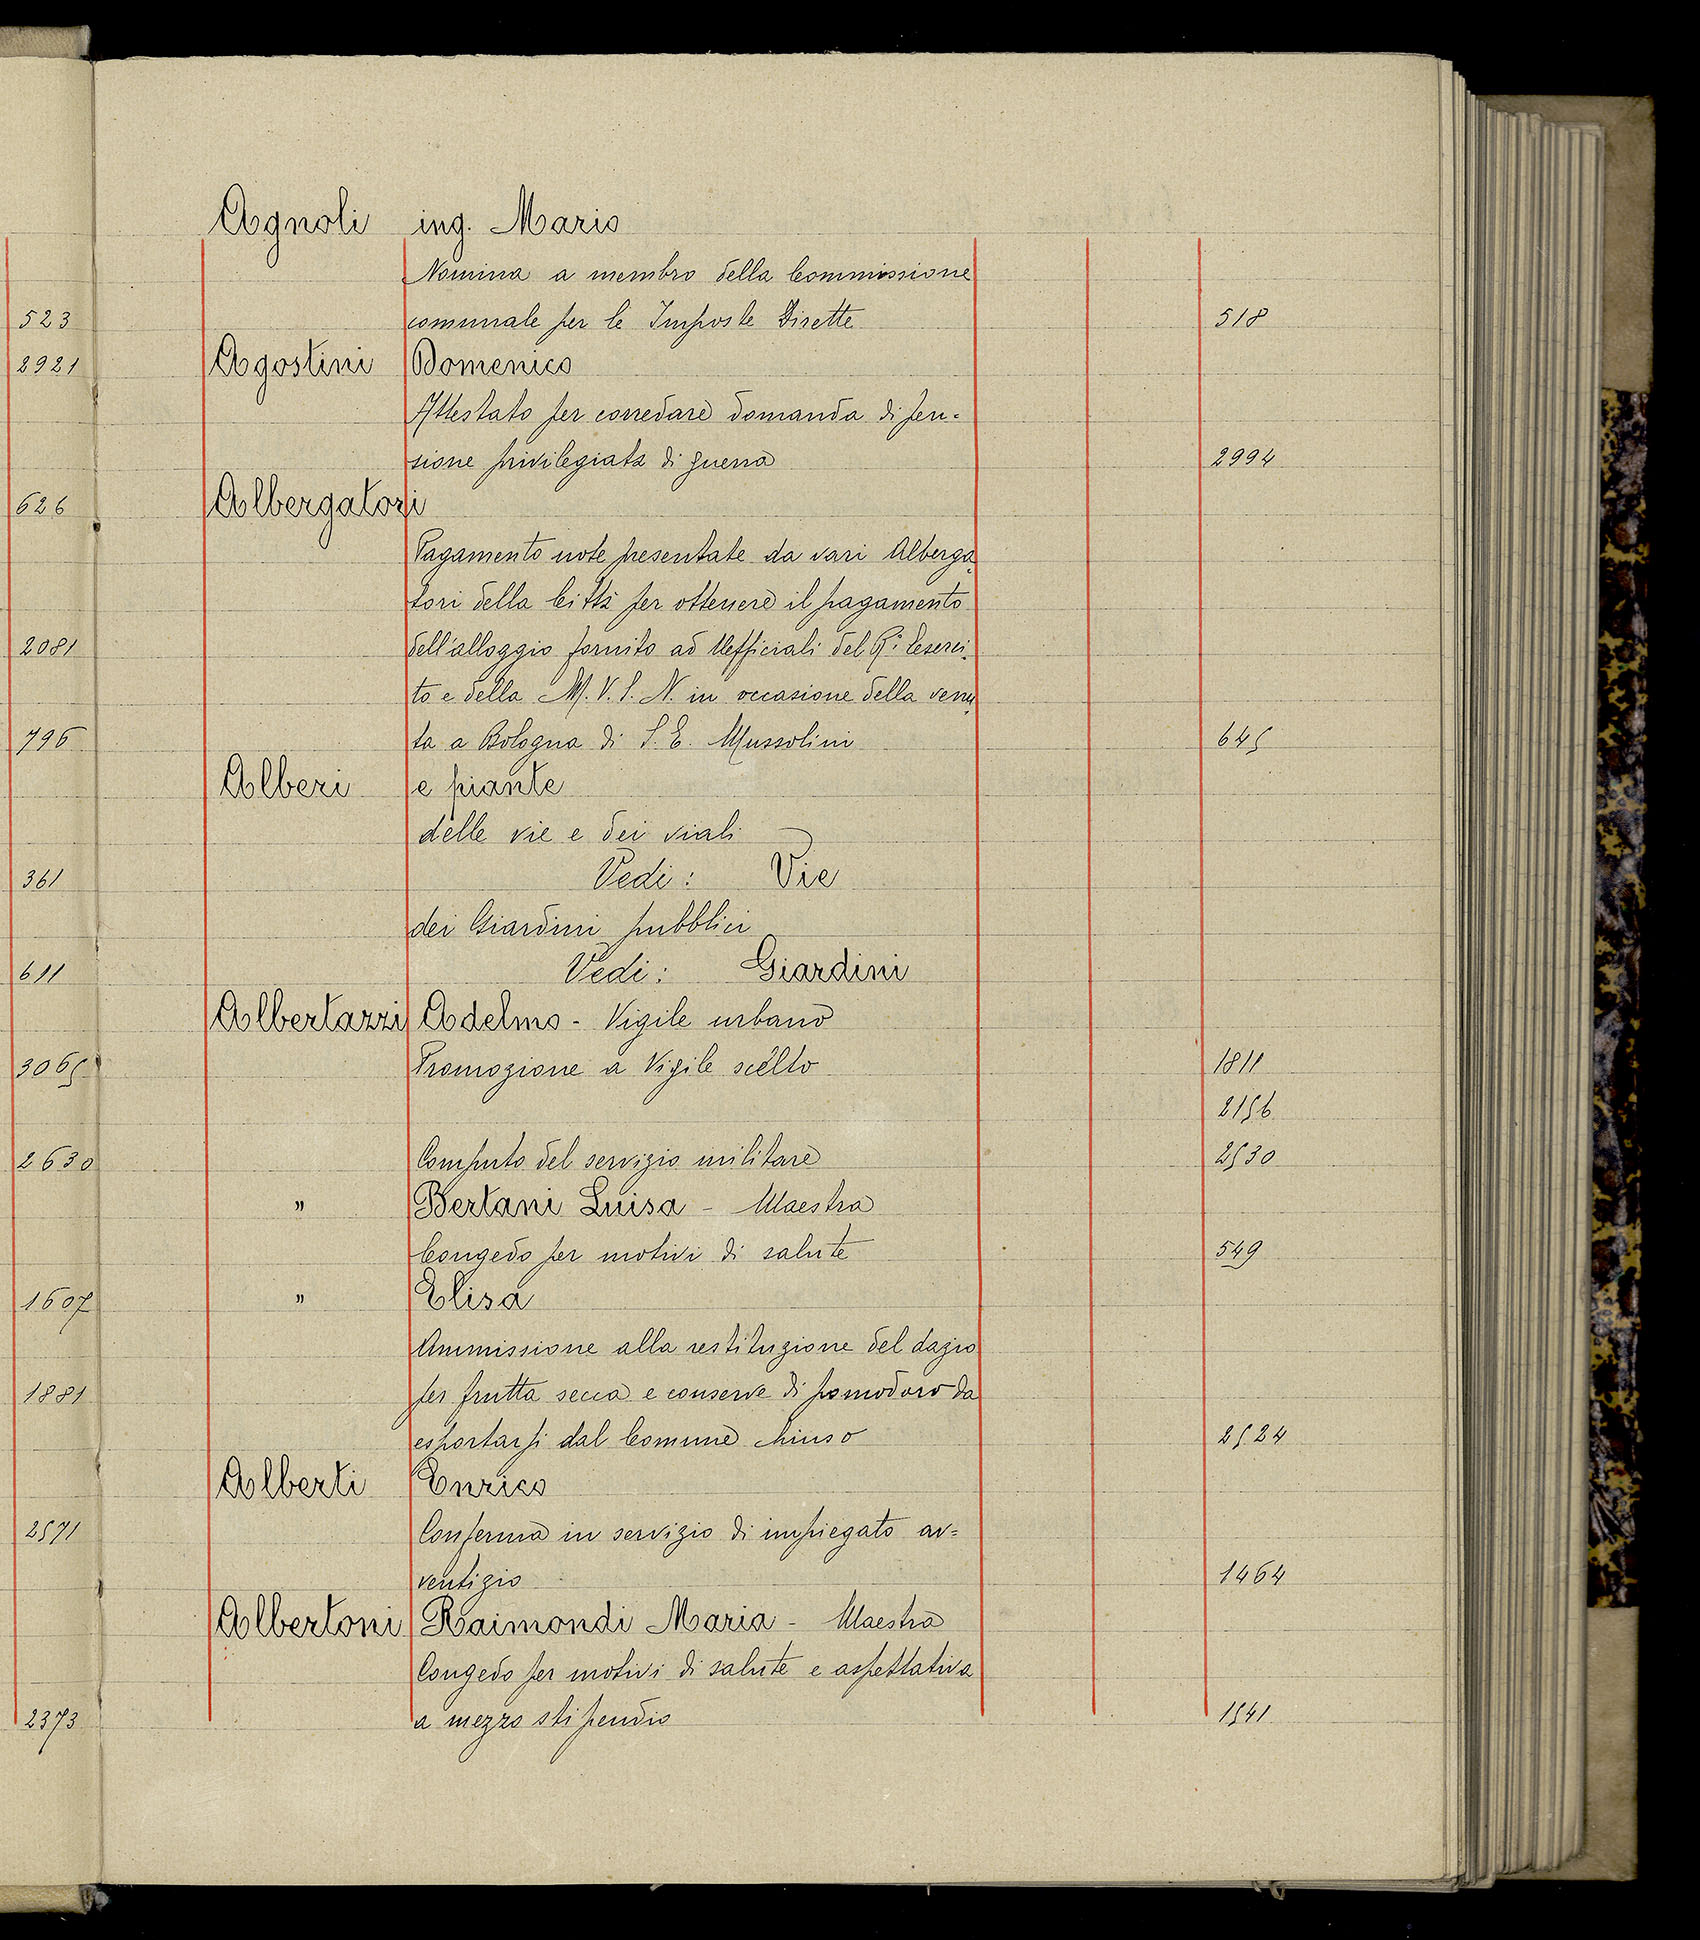 523
2921
626
2081
796
361
611
3065
2630
1607
1881
2571
2373
Agnoli ing. Mario
Nomina a membro della Commissione
comunale per le Imposte Dirette 518
Agostini Domenico
Attestato per corredare domanda di pen=
sione privilegiata di guerra 2994
Albergatori
Pagamento note presentate da vari Alberga
tori della Città per ottenere il pagamento
dell'alloggio fornito ad Ufficiali del R.° Eserci
to e della M. V. S. N. in occasione della venu
ta a Bologna di S. E. Mussolini 645
Alberi e piante
delle vie e dei viali
Vedi: Vie
dei Giardini pubblici
Vedi: Giardini
Albertazzi Adelmo - Vigile urbano
Promozione a Vigile scelto 1811
2156
Computo del servizio militare 2530
" Bertani Luisa - Maestra
Congedo per motivi di salute 549
" Elisa
Ammissione alla restituzione del dazio
per frutta secca e conserve di pomodoro da
esportarsi dal Comune chiuso 2524
Alberti Enrico
Conferma in servizio di impiegato av=
ventizio 1464
Albertoni Raimondi Maria - Maestra
Congedo per motivi di salute e aspettativa
a mezzo stipendio 1541